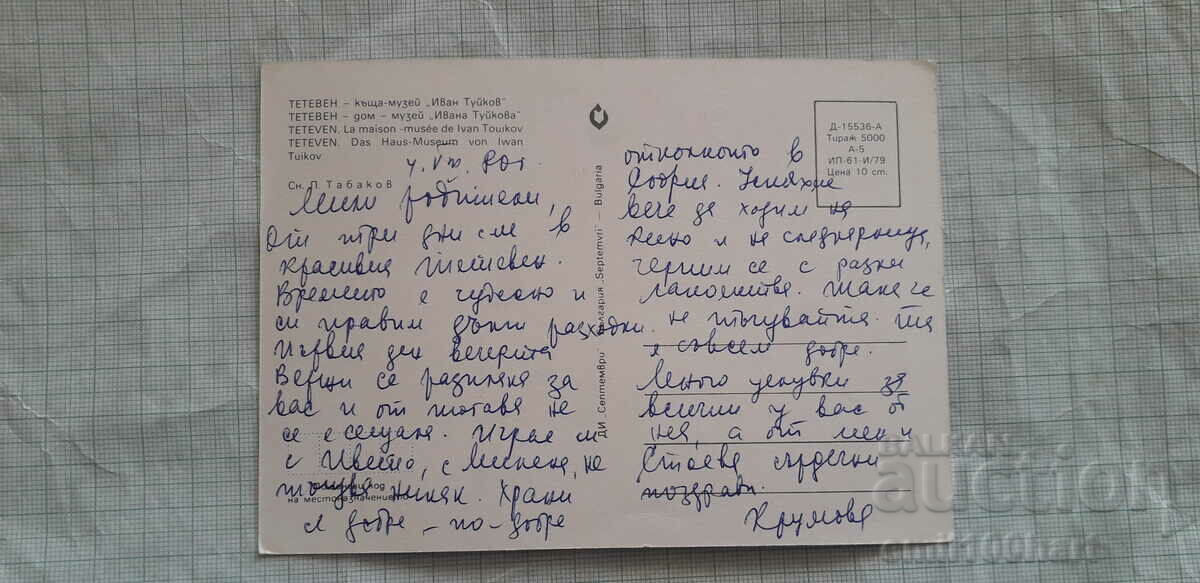 ТЕТЕВЕН – къща-музей „Иван Туйков"
ТЕТЕВЕН – дом – музей „Ивана Туйкова"
TETEVEN. La maison -musée de Ivan Touıkov
TETEVEN. Das Haus-Museum von Iwan
Tuikov
Сн. П. Табаков
Мили родители,
От три дни сме в
красивия Тетевен.
Времето е чудесно и
си правим дълги разходки.
Първия ден вечерта
се разплака за
вас и от тогава не
се е сещала. Играе си
с Цвети, с не
тъгува никак. Храни
се добре – по-добре
ДИ „Септември" България „Septemvri" – Bulgaria
на местоназначението
Д-15536-А
Тираж 5000
А-5
ИП-61-И/79
Цена 10 ст.
отколкото в
София.
вече да ходим на
кино и на сладкарница,
черпим се с разни
лакомства. Така че
не тъгувайте. Тя
е съвсем добре.
Много целувки за
всички у вас от
нея, а от мен и
Стоева сърдечни
поздрави.
Крумова
BALKAN
auction
emil100hars